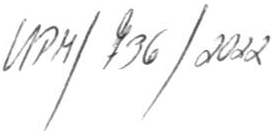 UPH/ 736/2022